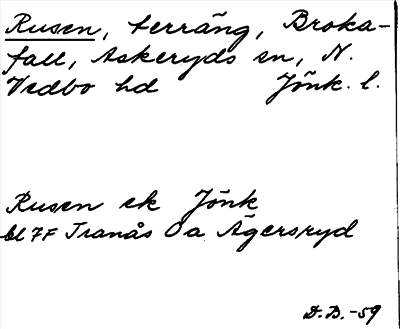 Rusen, terräng, Broka-
fall, Askeryds sn, N.
Vedbo hd Jönk. l.
Rusen ek Jönk
bl 7F Tranås Oa Ägersryd
D.B.-59